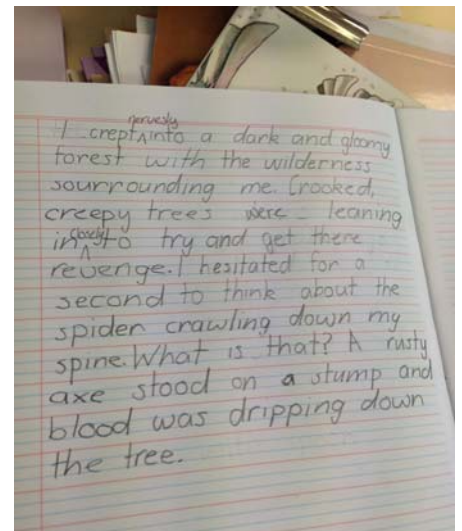 I crept nervesly into a dark and gloomy
forest with the wilderness
sourrounding me. Crooked,
creepy trees were leaning
in closely to try and get there
revenge. I hesitated for a
second to think about the
spider crawling down my
spine. What is that? A rusty
axe stood on a stump and
blood was dripping down
the tree.